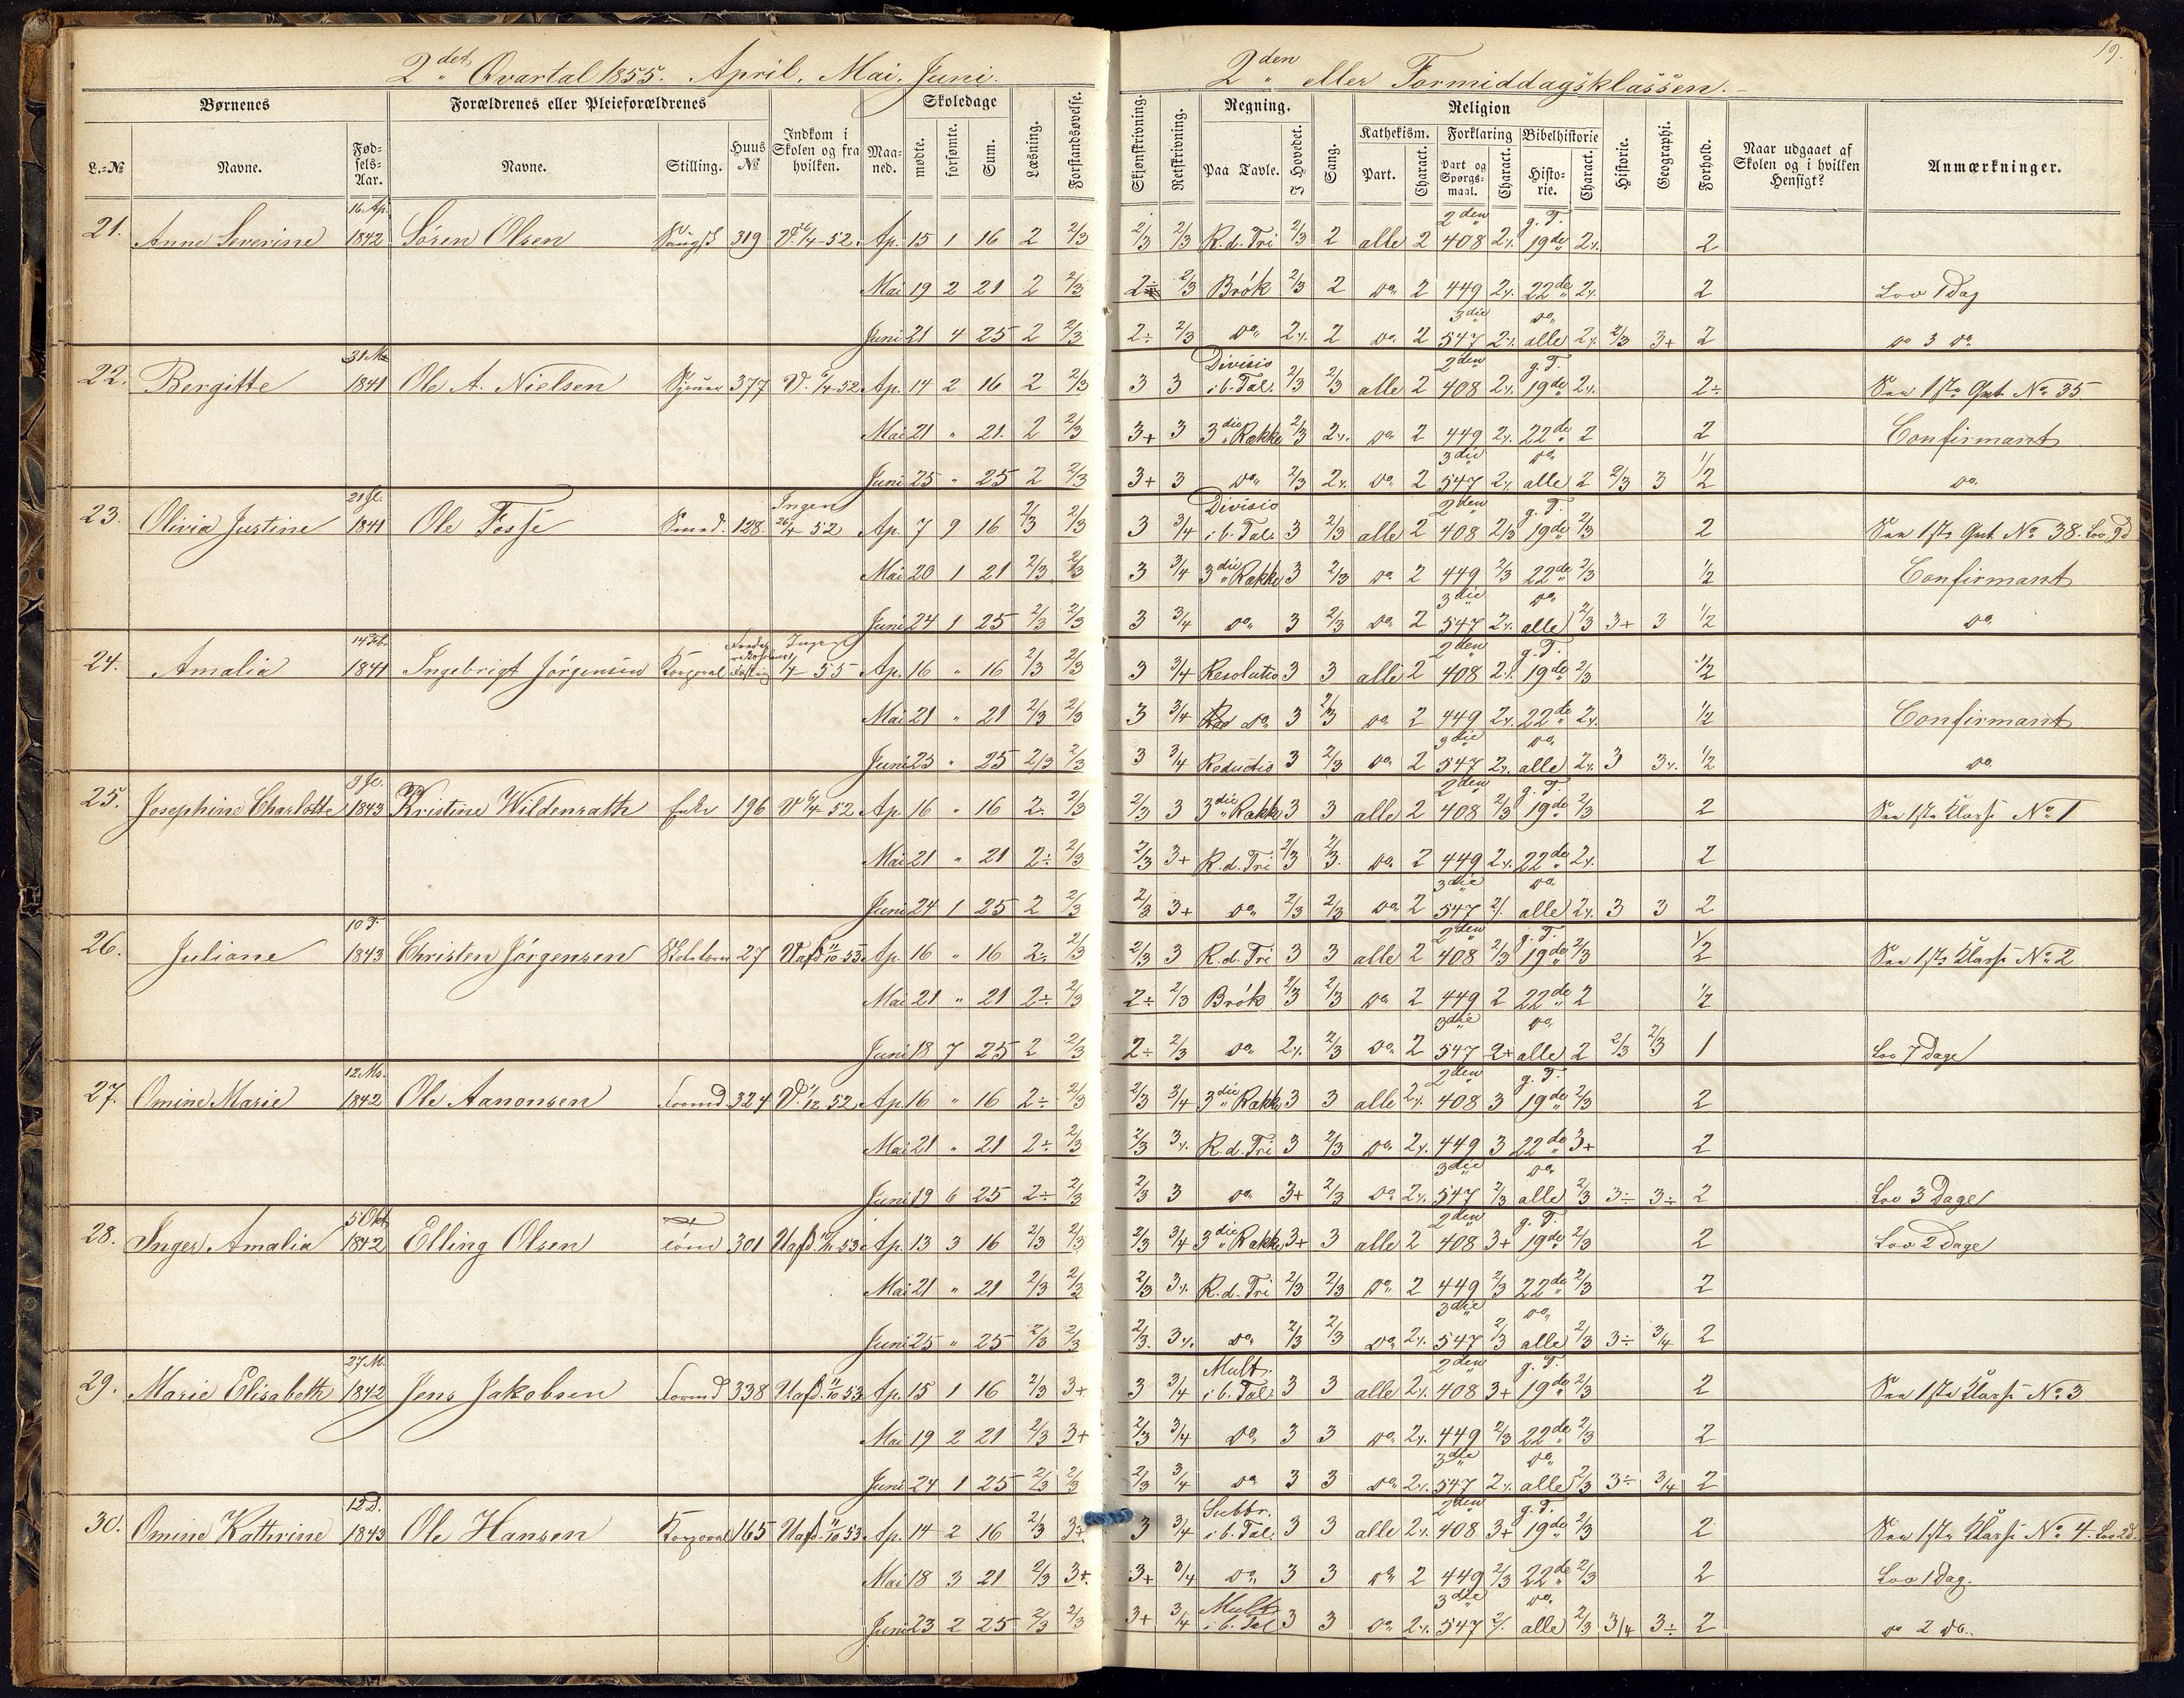 2det Qvartal 1855. April, Mai, Juni.
2den eller Formiddagsklassen.
19.
Børnenes
Forældrenes eller Pleieforældrenes
Skoledage
L.-№
Navne.
Fødsels-Aar.
Navne.
Stilling.
Huus №
Indkom i Skolen og fra hvilken.
Maaned.
mødte.
forsømte.
Sum.
Læsning.
Forstandsøvelse.
Skjønskrivning.
Retskrivning.
Regning.
Paa Tavle.
I Hovedet.
Sang.
Religion
Kathekism.
Forklaring
Bibelhistorie
Part.
Charact.
Part og Spørgsmaal.
Charact.
Historie.
Charact.
Historie.
Geographi.
Forhold.
Naar udgaaet af Skolen og i hvilken Hensigt?
Anmærkninger.
21. Anne Severine 16 Ap. 1842 Sören Olsen 319 Ap. 15 1 16 2 2/3 2/3 2/3 R.d.Tri 2/3 2 alle 2 2den 408 2% g.T. 19de 2% 2
Mai 19 2 21 2 2/3 2/3 Brök 2/3 2 do 2 449 2% 22de 2% 2 Lov 1 Dag
Juni 21 4 25 2 2/3 2÷ 2/3 do 2% 2 do 2 3die 547 2% do alle 2% 2/3 3+ 2 do 3 do
22. Bergitte 1841 Ole A. Nielsen 377 Ap. 14 2 16 2 2/3 3 3 Divisio i b. Tal. 2/3 2/3 alle 2 2den 408 2% g.T. 19de 2% 2÷ No 35
Mai 21 " 21 2 2/3 3+ 3 3die Række 2/3 2% do 2 449 2% 22de 2 2 Confirmant
Juni 25 " 25 2 2/3 3+ 3 do 2/3 2% do 2 3die 547 2% do alle 2 2/3 3 1/2 do
23. Olivia Justine 1841 Ole Fosse Smed. 128 Ingen 52 Ap. 7 9 16 2/3 2/3 3 3/4 Divisio i b. Tal. 3 2/3 alle 2 2den 408 2/3 g.T. 19de 2/3 2 No 38.
Mai 20 1 21 2/3 2/3 3 3/4 3die Række 3 2/3 do 2 449 2/3 22de 2/3 1/2 Confirmant
Juni 24 1 25 2/3 2/3 3 3/4 do 3 2/3 do 2 3die 547 2% do alle 2/3 3+ 3 1/2 do
24. Amalia 14 Feb. 1841 Ingebrigt Jörgensen Korporal Ingen 55 Ap. 16 " 16 2/3 2/3 3 3/4 Resolutio 3 3 alle 2 2den 408 2% g.T. 19de 2/3 1/2
Mai 21 " 21 2/3 2/3 3 3/4 do 3 2/3 do 2 449 2% 22de 2% 1/2 Confirmant
Juni 25 " 25 2/3 2/3 3 3/4 Reductio 3 2/3 do 2 3die 547 2% do alle 2% 3 3% 1/2 do
25. Josephine Charlotte 1843 Kristine Wildenrath Enke 196 52 Ap. 16 " 16 2÷ 2/3 2/3 3 3die Række 3 3 alle 2 2den 408 2/3 g.T. 19de 2/3 2 1ste Klasse No 1
Mai 21 " 21 2÷ 2/3 2/3 3+ R.d.Tri 2/3 2/3 do 2 449 2% 22de 2% 2
Juni 24 1 25 2 2/3 2/3 3+ do 2/3 2/3 do 2 3die 547 2% do alle 2% 3 3 2
26. Juliane 1843 Christen Jörgensen 27 Uafd. 53 Ap. 16 " 16 2÷ 2/3 2/3 3 R.d.Tri 3 3 alle 2 2den 408 2/3 g.T. 19de 2/3 1/2 1ste Klasse No 2
Mai 21 " 21 2÷ 2/3 2÷ 2/3 Brök 2/3 2/3 do 2 449 2 22de 2 1/2
Juni 18 7 25 2 2/3 2÷ 2/3 do 2% 2/3 do 2 3die 547 2+ do alle 2 2/3 2/3 1 Lov 7 Dage
27. Omine Marie 1842 Ole Aanonsen 324 52 Ap. 16 " 16 2÷ 2/3 2/3 3/4 3die Række 3 3 alle 2% 2den 408 3 g.T. 19de 2/3 2
Mai 21 " 21 2÷ 2/3 2/3 3% R.d.Tri 3 2/3 do 2% 449 3 22de 3+ 2
Juni 19 6 25 2÷ 2/3 2/3 3 do 3+ 2/3 do 2% 3die 547 2/3 do alle 2/3 3÷ 3÷ 2 Lov 3 Dage
28. Inger Amalia 5 Okt. 1842 Elling Olsen 301 Uafd. 53 Ap. 13 3 16 2/3 2/3 2/3 3/4 3die Række 3+ 3 alle 2 2den 408 3+ g.T. 19de 2/3 2 Lov 2 Dage
Mai 21 " 21 2/3 2/3 2/3 3% R.d.Tri 2/3 2/3 do 2 449 2/3 22de 2/3 2
Juni 25 " 25 2/3 2/3 2/3 3% do 2/3 2/3 do 2% 3die 547 2/3 do alle 2/3 3÷ 3/4 2
29. Marie Elisabeth 27 M. 1842 Jens Jakobsen 338 Uafd. 53 Ap. 15 1 16 2/3 3+ 3 3/4 Mult. i b. Tal 3 3 alle 2% 2den 408 3+ g.T. 19de 2/3 2 1ste Klasse No 3
Mai 19 2 21 2/3 3+ 2/3 3/4 do 3 3 do 2% 449 2/3 22de 2/3 2
Juni 24 1 25 2/3 2/3 2/3 3/4 do 3 3 do 2% 3die 547 2% do alle 2/3 3÷ 3/4 2
30. Omine Kathrine 1843 Ole Hansen Korporal 165 Uafd. 53 Ap. 14 2 16 2/3 3+ 3 3/4 Subtr. i b. Tal 3 3 alle 2% 2den 408 3+ g.T. 19de 2/3 2 1ste Klasse No 4.
Mai 18 3 21 2/3 3+ 3+ 3/4 do 3 3 do 2 449 2/3 22de 2/3 2 Lov 1 Dag.
Juni 23 2 25 2/3 2/3 3+ 3/4 Mult. i b. Tal 3 3 do 2% 3die 547 2% do alle 2/3 3/4 3÷ 2 do 2 do.